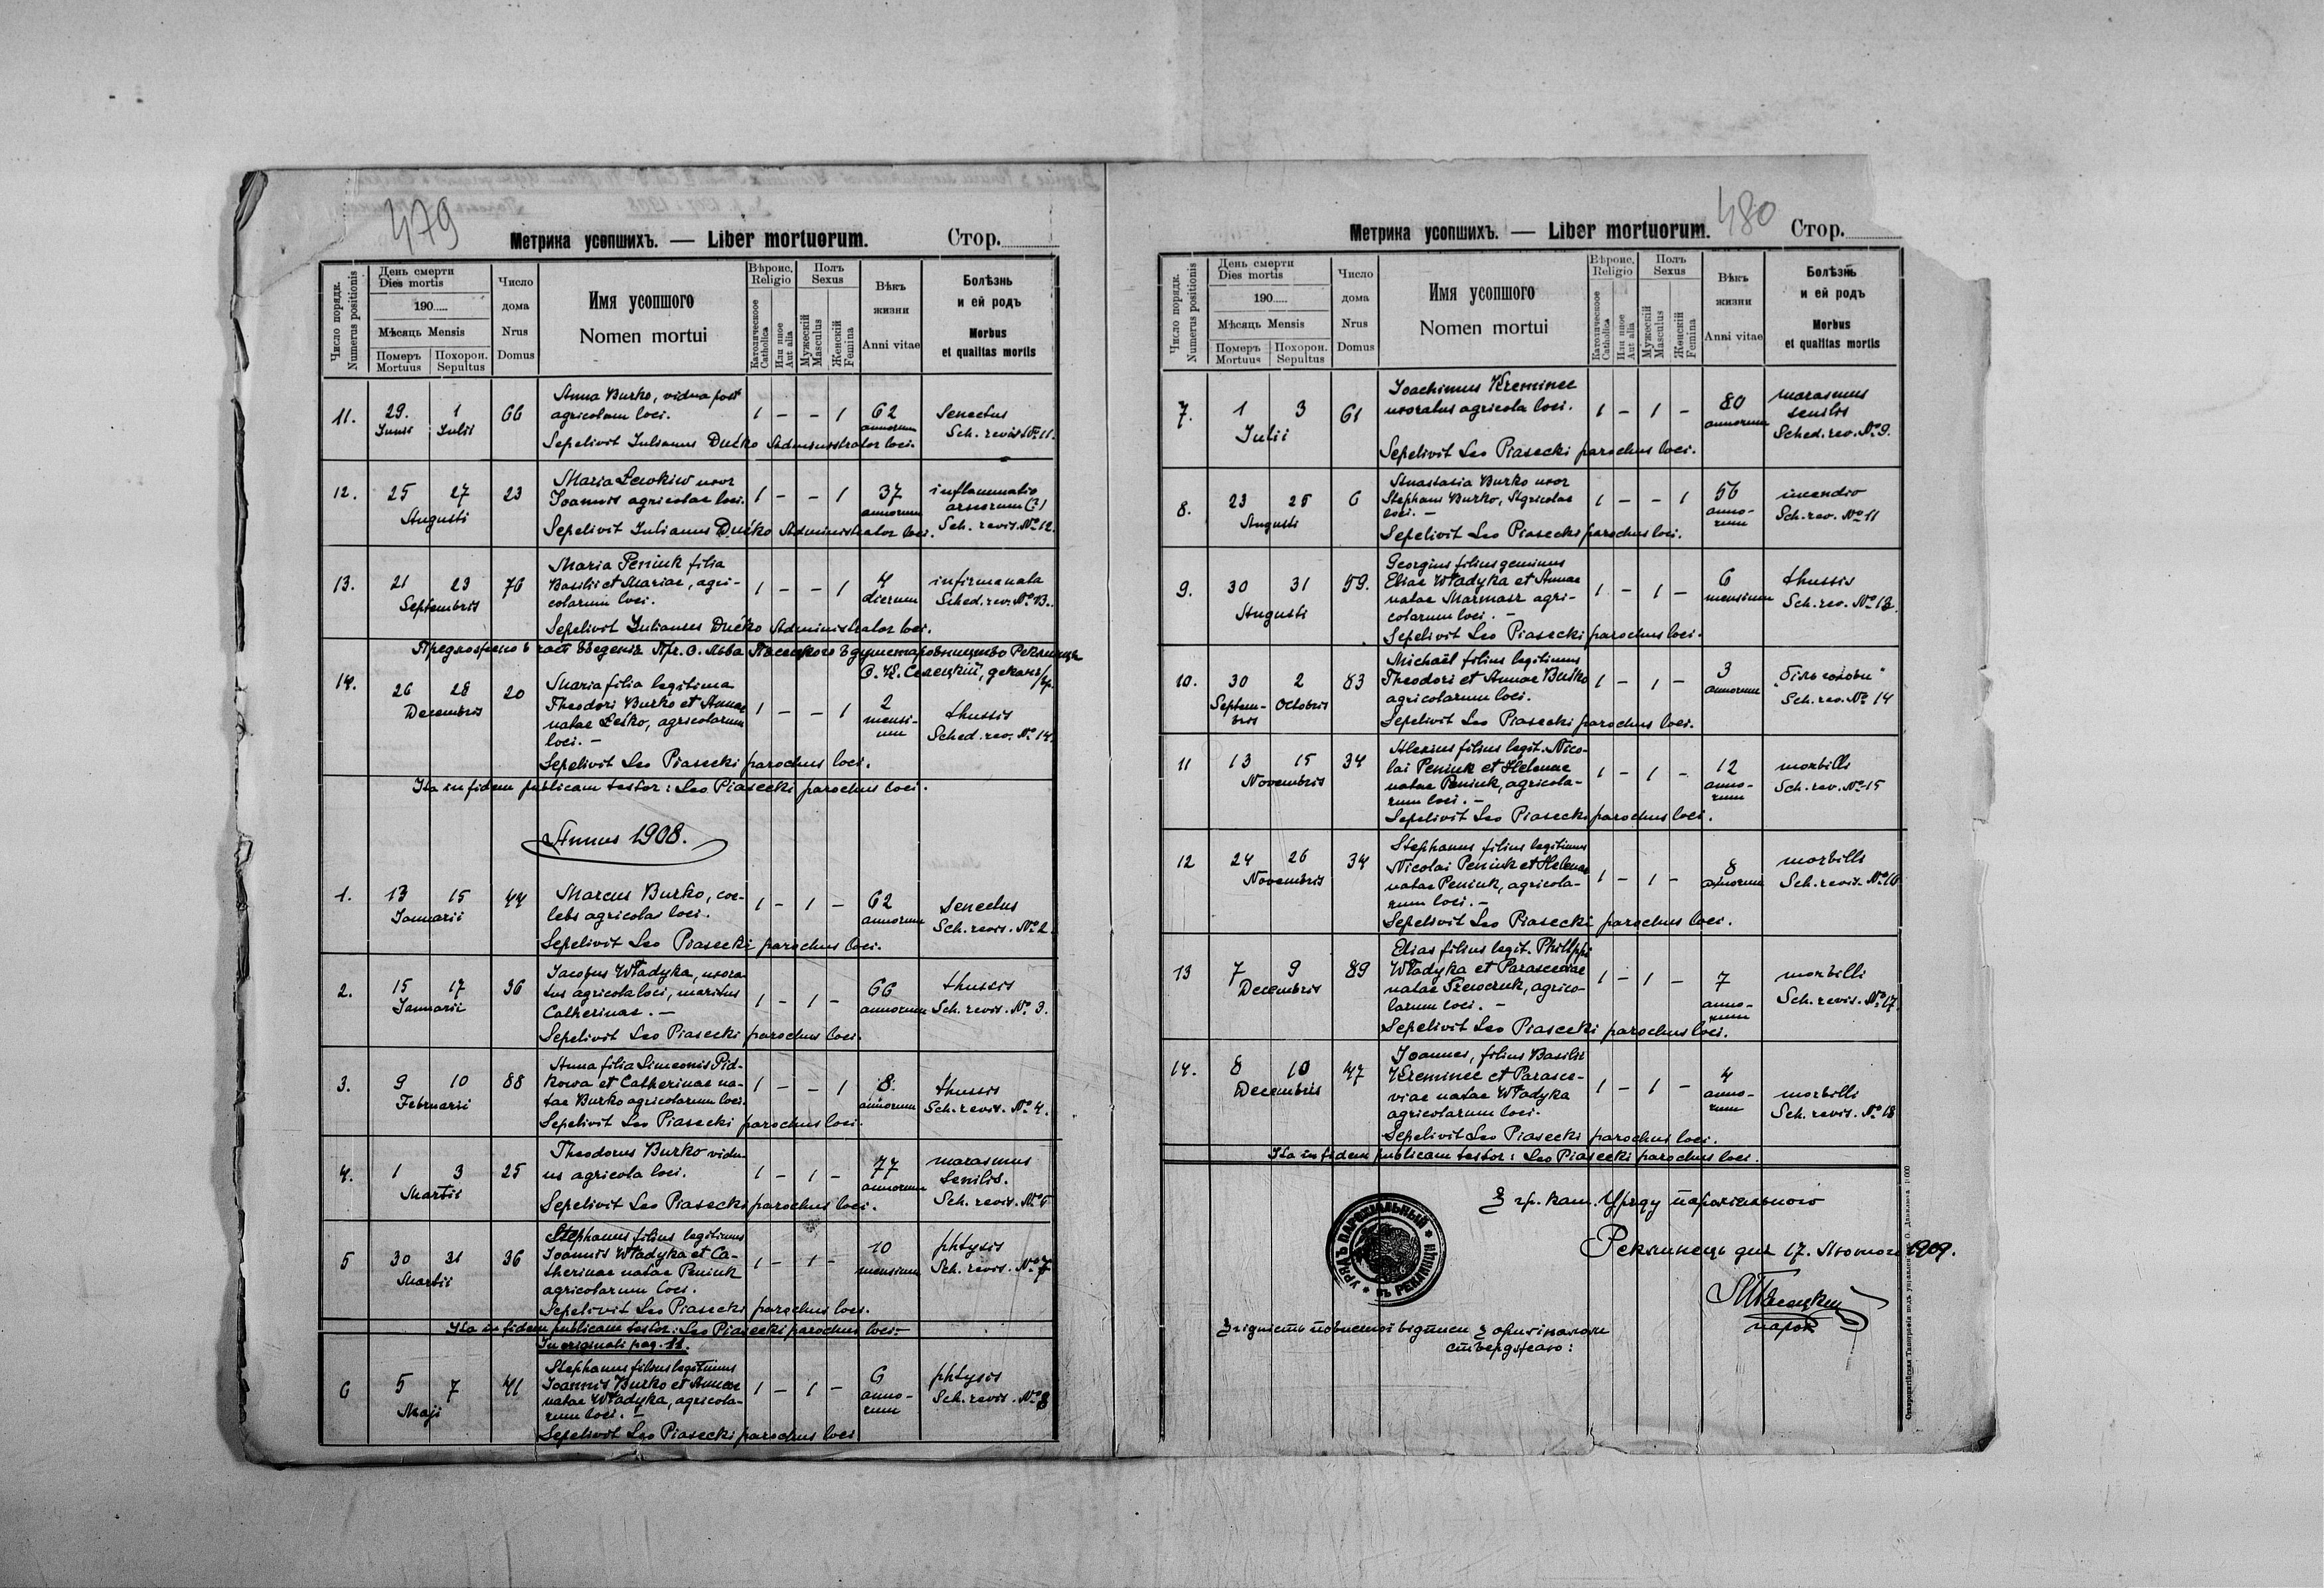 479
Метрика усопшихъ. — Liber mortuorum. Стор.
Число порядк. Numerus positionis
День смерти Dies mortis
190
Мѣсяць Mensis
Померъ Mortuus
Похорон. Sepultus
Число дома Nrus Domus
Имя усопшого
Nomen mortui
Вѣроис. Religio
Католическоое Catholica
Или иное Aut alia
Полъ Sexus
Мужескій Masculus
Женскій Femina
Вѣкъ жизни Anni vitae
Болѣзнь и ей родъ
Morbus et qualitas mortis
11. 29. Junii 1 Julii 66 Anna Burko, vidua post agricolam loci. 1 – – 1 62 annorum Senectus Sch. revis. № 11.
Sepelivit Julianus Dućko Administrator loci.
12. 25 27 Augusti 23 Maria Lewkiw uxor Joannis agricolae loci. 1 – – 1 37 annorum inflammatio Sch. revis. № 12.
Sepelivit Julianus Dućko Administrator loci.
13. 21 23 Septembris 76 Maria Peniuk filia Basilii et Mariae, agricolarum loci. 1 – – 1 4 dierum infirme nata Sched. rev. № 13.
Sepelivit Julianus Dućko Administrator loci.
14. 26 28 Decembris 20 Maria filia legitima Theodori Burko et Annae natae Leśko, agricolarum loci. – 1 – – 1 2 mensium thussis Sched. rev. № 14.
Sepelivit Leo Piasecki parochus loci.
Ita in fidem publicam testor: Leo Piasecki parochus loci.
Annus 1908.
1. 13 15 Januarii 44 Marcus Burko, coelebs agricola loci. 1 – 1 – 62 annorum Senectus Sch. revis. № 2.
Sepelivit Leo Piasecki parochus loci.
2. 15 17 Januarii 36 Jacobus Władyka, uxoratus agricola loci, maritus Catherinae. – 1 – 1 – 66 annorum thussis Sch. revis. № 3.
Sepelivit Leo Piasecki parochus loci.
3. 9 10 Februarii 88 Anna filia Simeonis Pidkowa et Catherinae natae Burko agricolarum loci. 1 – – 1 8 annorum thussis Sch. revis. № 4.
Sepelivit Leo Piasecki parochus loci.
4. 1 3 Martii 25 Theodorus Burko viduus agricola loci. 1 – 1 – 77 annorum marasmus senilis. Sch. revis. № 6
Sepelivit Leo Piasecki parochus loci.
5 30 31 Martii 36 Stephanus filius legitimus Joannis Władyka et Catherinae natae Peniuk agricolarum loci. 1 – 1 – 10 mensium phtysis Sch. revis. № 7
Sepelivit Leo Piasecki parochus loci.
Ita in fidem publicam testor: Leo Piasecki parochus loci.
In originali pag. 11.
6 5 7 Maji 41 Stephanus filius legitimus Joannis Burko et Annae natae Władyka, agricolarum loci. – 1 – 1 – 6 annorum phtysis Sch. revis. № 8
Sepelivit Leo Piasecki parochus loci
480
Метрика усопшихъ. — Liber mortuorum. Стор.
Число порядк. Numerus positionis
День смерти Dies mortis
190
Мѣсяць Mensis
Померъ Mortuus
Похорон. Sepultus
Число дома Nrus Domus
Имя усопшого
Nomen mortui
Вѣроис. Religio
Католическоое Catholica
Или иное Aut alia
Полъ Sexus
Мужескій Masculus
Женскій Femina
Вѣкъ жизни Anni vitae
Болѣзнь и ей родъ
Morbus et qualitas mortis
7. 1 3 Julii 61 Joachimus Kreminec uxoratus agricola loci. 1 – 1 – 80 annorum marasmus senilis Sched. rev. № 9.
Sepelivit Leo Piasecki parochus loci.
8. 23 25 Augusti 6 Anastasia Burko uxor Stephani Burko, Agricolae loci. – 1 – – 1 56 annorum incendio Sch. rev. № 11
Sepelivit Leo Piasecki parochus loci.
9. 30 31 Augusti 59. Georgius filius geminus Eliae Władyka et Annae natae Marmasz agricolarum loci. – 1 – 1 – 6 mensium thussis Sch. rev. № 13.
Sepelivit Leo Piasecki parochus loci.
10. 30 Septembris 2 Octobris 83 Michaël filius legitimus Theodori et Annae Buśko agricolarum loci. 1 – 1 – 3 annorum „біль голови“ Sch. rev. № 14
Sepelivit Leo Piasecki parochus loci.
11 13 15 Novembris 34 Alexius filius legit. Nicolai Peniuk et Helenae natae Peniuk, agricolarum loci. – 1 – 1 – 12 annorum morbilli Sch. rev. № 15
Sepelivit Leo Piasecki parochus loci.
12 24 26 Novembris 34 Stephanus filius legitimus Nicolai Peniuk et Helenae natae Peniuk, agricolarum loci. – 1 – 1 – 8 annorum morbilli Sch. revis. № 16
Sepelivit Leo Piasecki parochus loci.
13 7 9 Decembris 89 Elias filius legit. Philippi Władyka et Parasceviae natae Szewczuk, agricolarum loci. – 1 – 1 – 7 annorum morbilli Sch. revis. № 17
Sepelivit Leo Piasecki parochus loci.
14. 8 10 Decembris 47 Joannes, filius Basilii Kreminec et Parasceviae natae Władyka agricolarum loci. 1 – 1 – 4 annorum morbilli Sch. revis. № 18
Sepelivit Leo Piasecki parochus loci.
Ita in fidem publicam testor: Leo Piasecki parochus loci.
З гр. кат. Уряду парохіяльного
Реклинець дня 17. Лютого 1909.
парох
УРЯДЪ ПАРОХІАЛЬНЫЙ